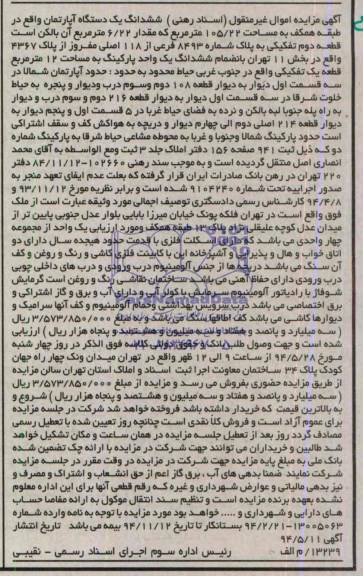 آگهی مزایده اموال غیرمنقول (اسناد رهنی ) ششدانگ یک دستگاه آپارتمان واقع در
طبقه همکف به مساحت ۱۰۵/۲۲ مترمربع که مقدار ۶/۲۲ مترمربع آن بالکن است
قطعه دوم تفکیکی به پلاک شماره ۸۴۹۳ فرعی از ۱۱۸ اصلی مفروز از پلاک ۴۳۶۷
واقع در بخش ۱۱ تهران بانضمام ششدانگ یک واحد پارکینگ به مساحت ۱۲ مترمربع
قطعه یک تفکیکی واقع در جنوب غربی حیاط محدود به حدود : حدود آپارتمان شمالا در
سه قسمت اول دیوار به دیوار قطعه ۱۰۸ دوم وسوم درب ودیوار و پنجره به حیاط
خلوت شرقا در سه قسمت اول دیوار به دیوار قطعه ۲۱۶ دوم و سوم درب و دیوار
به راه پله جنوبا لبه بالکن و نرده به فضای حیاط غربا در ۵ قسمت اول و پنجم دیوار به
دیوار قطعه ۲۱۴ اصلی دوم الی چهارم دیوار و دریچه به هواکش کف و سقف اشتراکی
است حدود پارکینگ شمالا وجنوبا و غربا به محوطه مشاعی حیاط شرقا به پارکینگ شماره
دو که ذیل ثبت ۹۴۱ صفحه ۱۵۶ دفتر املاک جلد ۳ ثبت ومع الواسطه به آقای محمد
انصاری اصل منتقل گردیده است و به موجب سند رهنی ۱۰۲۶۶۰-۸۴/۱۱/۱۲ دفتر
۲۲۰ تهران در رهن بانک صادرات ایران قرار گرفته که بعلت عدم ایفای تعهد منجر به
صدور اجراییه تحت شماره ۹۱۰۴۲۴۰ شده است و برابر نظریه مورخ ۹۳/۱۱/۱۲ و
۹۴/۴/۸ کارشناس رسمی دادگستری توصیف اجمالی مورد وثیقه عبارت است از ملک
فوق واقع است در تهران فلکه پونک خیابان میرزا بابایی بلوار عدل جنوبی پایین تر از
میدان عدل کوچه علیقلی زاده پلاک ۱۳ طبقه همکف ومورد ارزیابی یک واحد از مجموعه
چهار واحدی می باشد که دارای اسکلت فلزی با قدمت حدود هیجده سال دارای دو
اتاق خواب و هال و پذیرایی و آشپزخانه اپن با کابینت فلزی کاشی و رنگ و روغن و کف
آن سنگ می باشد درب ها از جنس آلومینیوم درب ورودی و درب های داخلی چوبی
درب ورودی دارای حفاظ آهنی می باشد ساختمان نقاشی رنگ و روغن است گرمایش
شوفاژ با رادیاتور آلومینیوم سرمایش با کولر آبی و دارای آب و برق و گاز اشتراکی و
برق اختصاصی می باشد درب سرویس بهداشتی وحمام آلومینیوم و کف آنها سرامیک و
دیوارها کاشی می باشد کف اطاقها سنگ می باشد و به مبلغ ۳/۵۷۳/۸۵۰/۰۰۰ ریال
( سه میلیارد و پانصد و هفتاد و سه میلیون و هشتصد و پنجاه هزار ریال ) ارزیابی
شده است و جهت وصول طلب بانک و حقوق دولتی کلاسه فوق الذکر در روز چهار شنبه
مورخ ۹۴/۵/۲۸ از ساعت ۹ الی ۱۲ ظهر واقع در تهران میدان ونک چهار راه جهان
کودک پلاک ۳۶ ساختمان معاونت اجرا ثبت اسناد و املاک استان تهران سالن مزایده
از طریق مزایده حضوری بفروش می رسد و مزایده از مبلغ ۳/۵۷۳/۸۵۰/۰۰۰ ریال
( سه میلیارد و پانصد و هفتاد و سه میلیون و هشتصد و پنجاه هزار ریال ) شروع و
به بالاترین قیمت که خریدار داشته باشد فروخته خواهد شد شرکت در جلسه مزایده
برای عموم آزاد است و فروش کلا نقدی است چنانچه روز تعیین شده با تعطیل رسمی
مصادف گردد روز بعد از تعطیل جلسه مزایده در همان ساعت و مکان تشکیل خواهد
شد طالبین و خریداران می توانند جهت شرکت در مزایده با ارائه چک تضمین شده
بانک ملی به مبلغ پایه مزایده جهت شرکت در مزایده در وقت مقرر در جلسه مزایده
شرکت نمایند ضمنا بدهی های آب ، برق گاز اعم از حق انشعاب و اشتراک و مصرف و
نیز بدهی مالیاتی و عوارض شهرداری و غیره که رقم قطعی آنها برای این اداره معلوم
نشده بعهده برنده مزایده است و تنظیم سند انتقال موکول به ارائه مفاصا حساب
های دارایی و شهرداری و ..... خواهد بود مورد مزایده با توجه به نامه وارده شماره
۱۳۰۰۵۰۶۳-۹۴/۲/۲۱ بستانکار تا تاریخ ۹۴/۱۱/۱۲ بیمه می باشد تاریخ انتشار
آگهی ۹۴/۵/۱۱
۱۳۲۳۹/ م الف رئیس اداره سوم اجرای اسناد رسمی - نقیبی